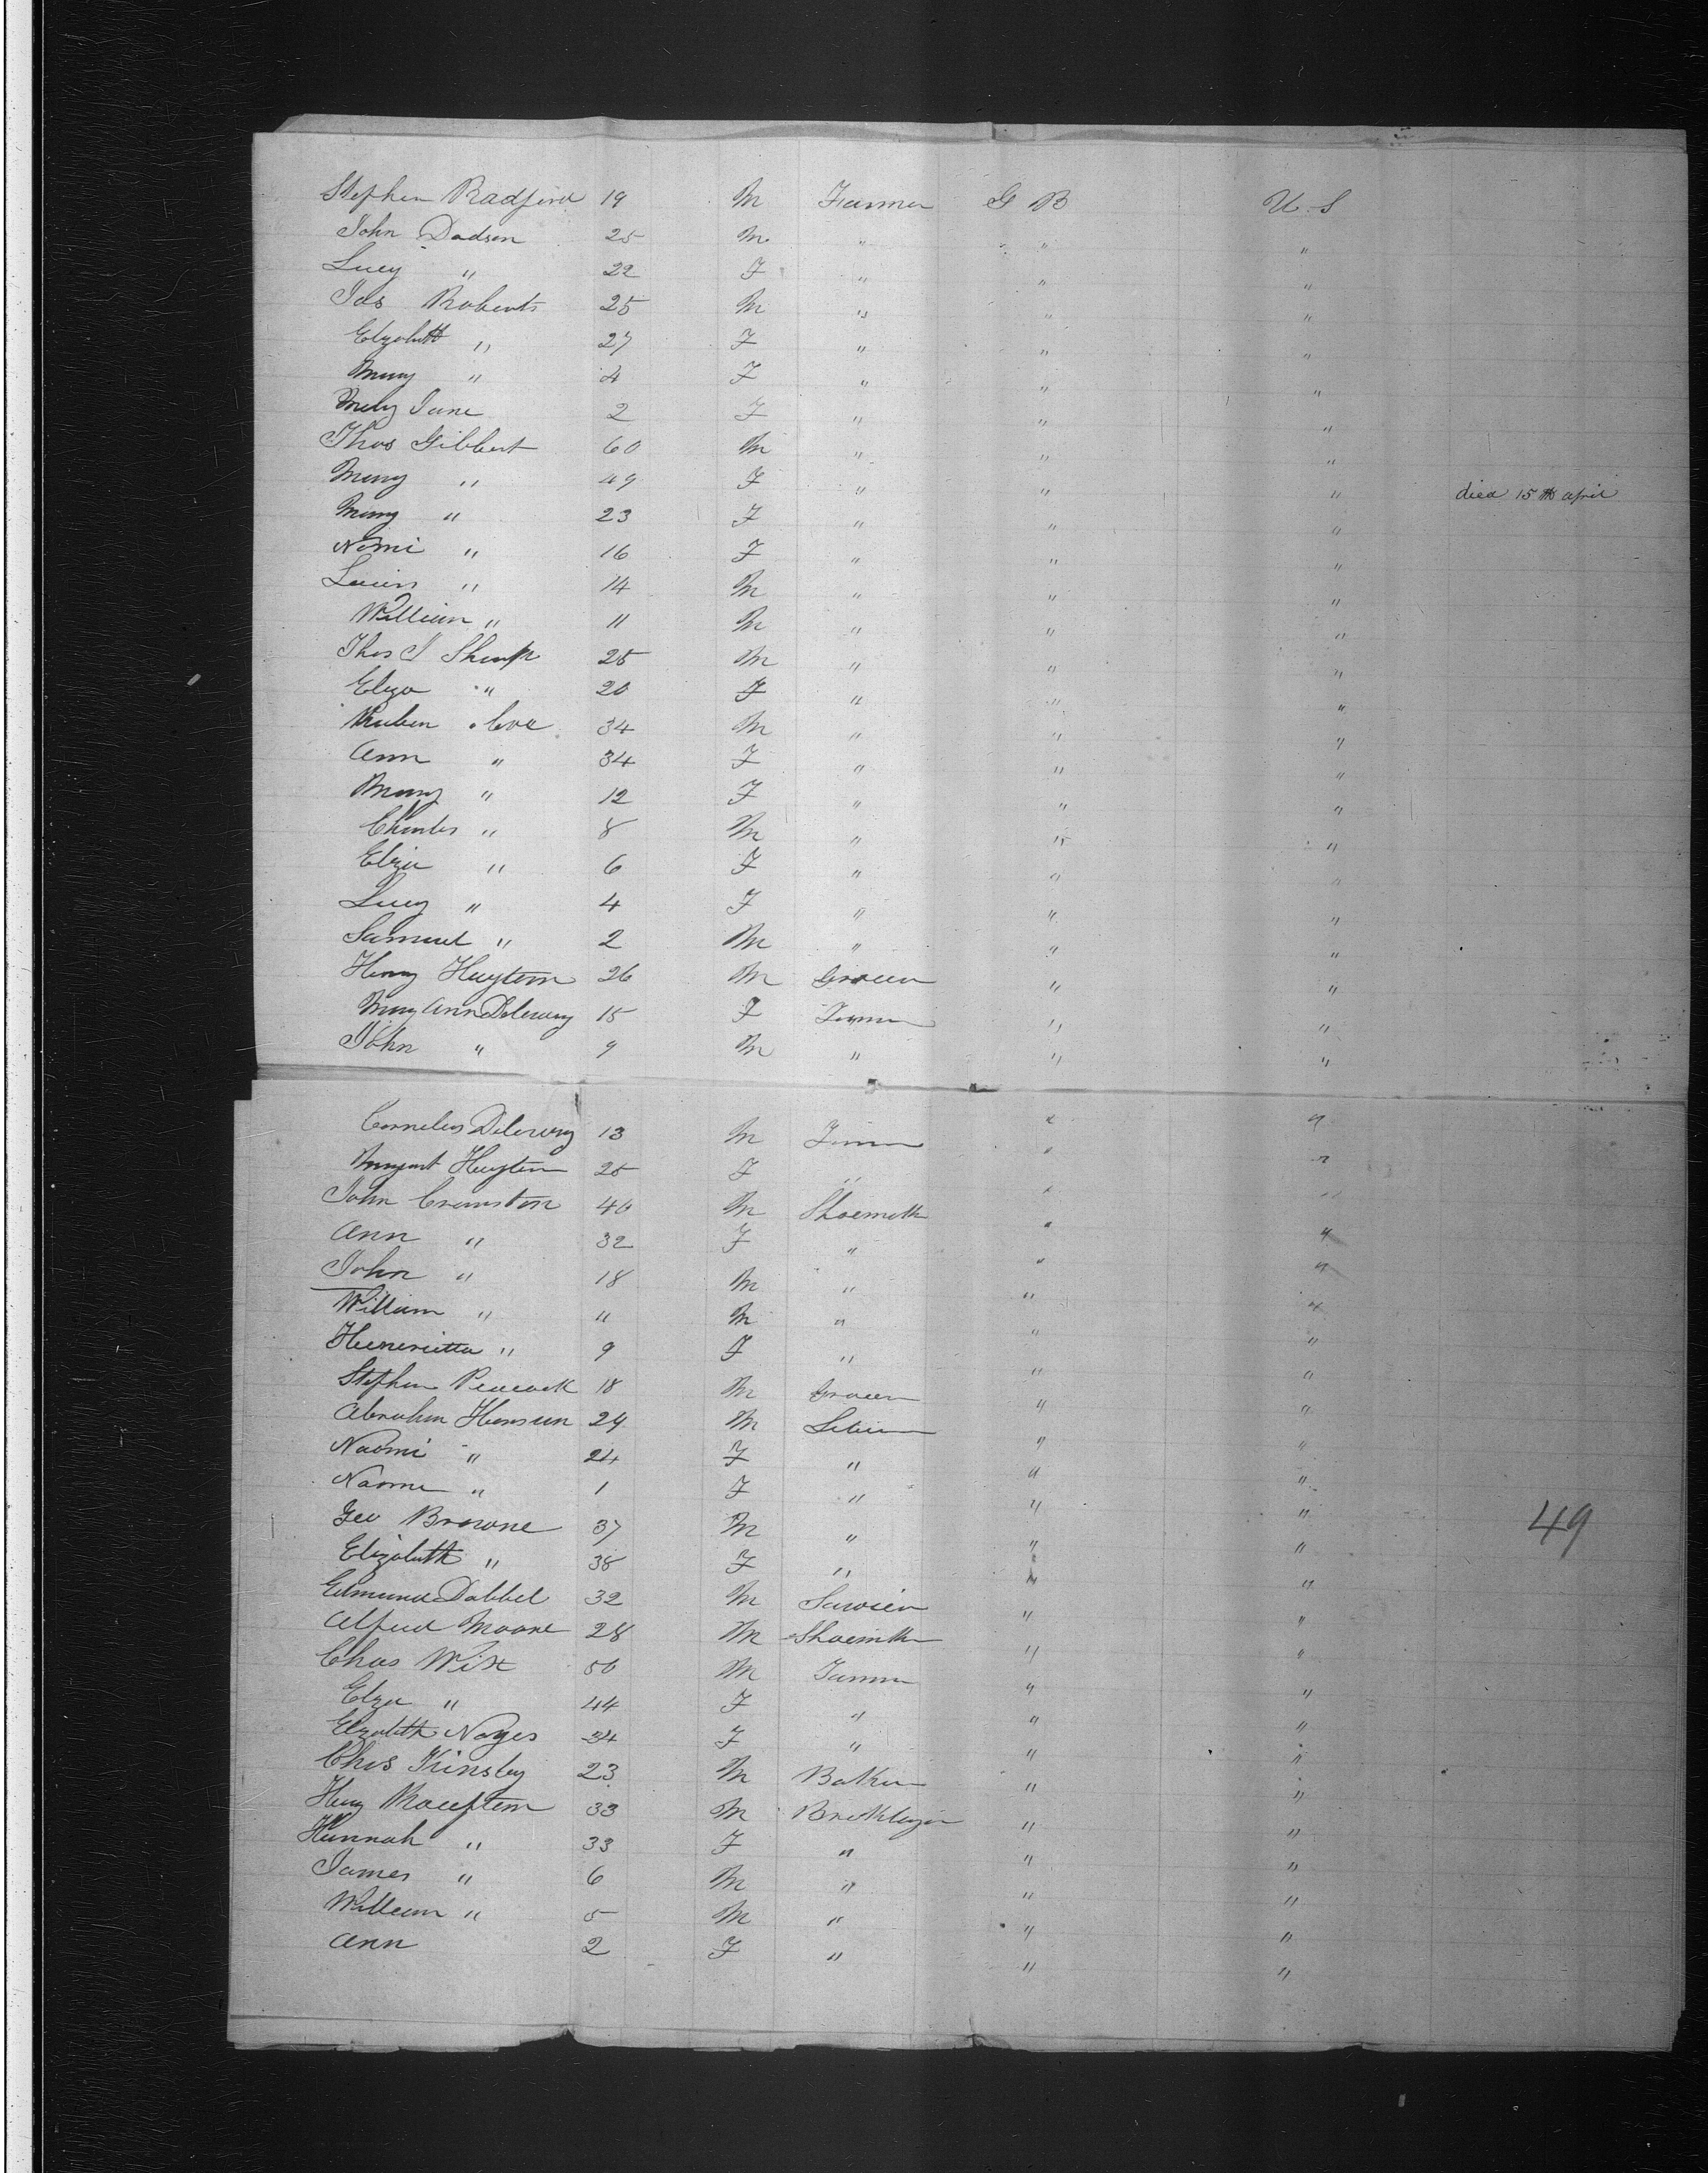 Stephen Radford 19 M Farmer G B U.S
John Dodson 25 M " " "
Lucy " 22 F " " "
Jas Roberts 25 M " " "
Elizabeth " 27 F " " "
Mary " 4 F " " "
Jane 2 F " " "
Thos Gibbert 60 M " " "
Mary " 49 F " " " died 15th april
Mary " 23 F " " "
Nomi " 16 F " " "
14 M " " "
William " 11 M " " "
Thos J Sharp 25 M " " "
Eliza " 20 F " " "
Reuben 34 M " " "
Ann " 34 F " " "
Mary " 12 F " " "
Charles " 8 M " " "
Eliza " 6 F " " "
Lucy " 4 F " " "
Samuel " 2 M " " "
Henry 26 M Grocer " "
Mary Ann 15 F Farmer " "
John " 9 M " " "
Cornelius 13 M Farmer " "
Margaret 25 F " " "
John Cranston 40 M " "
Ann " 32 F " " "
John " 18 M " " "
William " 11 M " " "
Henerietta " 9 F " " "
Stephen Peacock 18 M Grocer " "
Abraham 24 M " "
Naomi " 24 F " " "
Naomi " 1 F " " "
Geo Browne 37 M " " "
Elizabeth " 38 F " " "
Edmund Dabbel 32 M " "
Alfred Moore 28 M " "
Chas Wix 50 M Farmer " "
Eliza " 44 F " " "
Elizabeth Noyes 34 F " " "
Chas Kinsley 23 M Baker " "
Henry 33 M Bricklayer " "
Hannah " 33 F " " "
James " 6 M " " "
William " 5 M " " "
Ann 2 F " " "
49